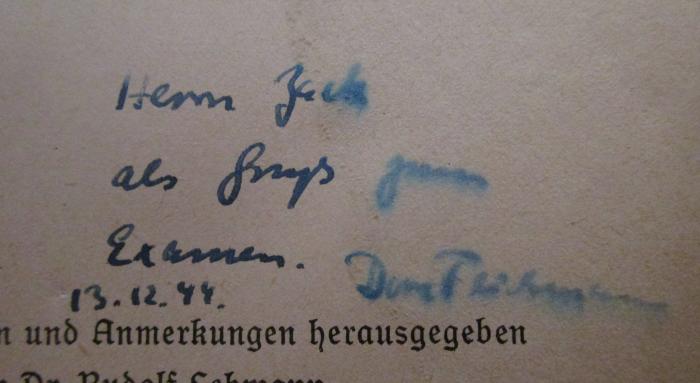 Herrn Jack
als Gruß zum
Examen.
13.12.44.
n und Anmerkungen herausgegeben
Dr. Rudolf Lehmann